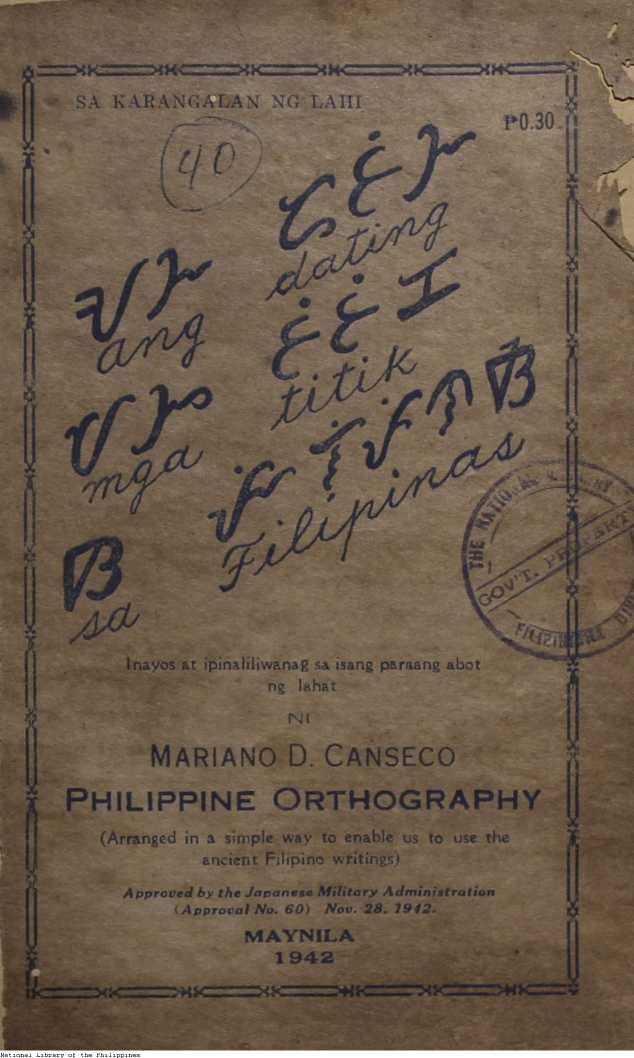 SA KARANGALAN NG LAHI
₱0.30
40
ᜀᜅ ᜇᜆᜒᜅ
ang dating
ᜋᜅ ᜆᜒᜆᜒᜃ
mga titik
ᜐ ᜉᜒᜎᜒᜉᜒᜈᜐ
sa Filipinas
THE NATIONAL
GOV'T. PROPERTY
Inayos at ipinaliliwanag sa isang paraang abot
ng lahat
NI
MARIANO D. CANSECO
PHILIPPINE ORTHOGRAPHY
(Arranged in a simple way to enable us to use the
ancient Filipino writings)
Approved by the Japanese Military Administration
(Approval No. 60) Nov. 28, 1942.
MAYNILA
1942
National Library of the Philippines